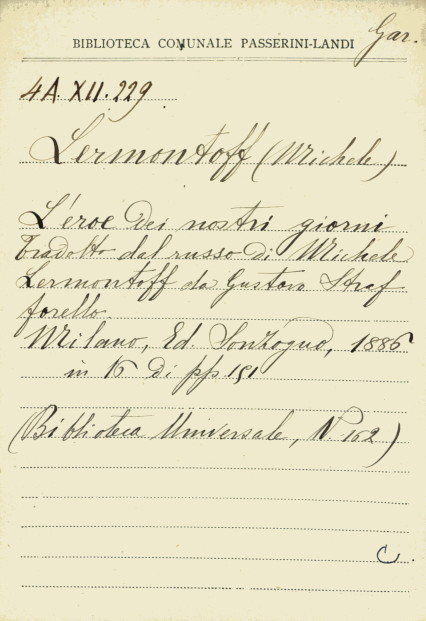 Gar.
BIBLIOTECA COMUNALE PASSERINI-LANDI
4A. XII. 229
Lermontoff (Michele)
L'eroe dei nostri giorni
tradotto dal russo di Michele
Lermontoff da Gustavo Straf
forello
Milano, Ed. Sonzogno, 1886
in 16 di pp 191
(Biblioteca Universale, N. 162)
C.